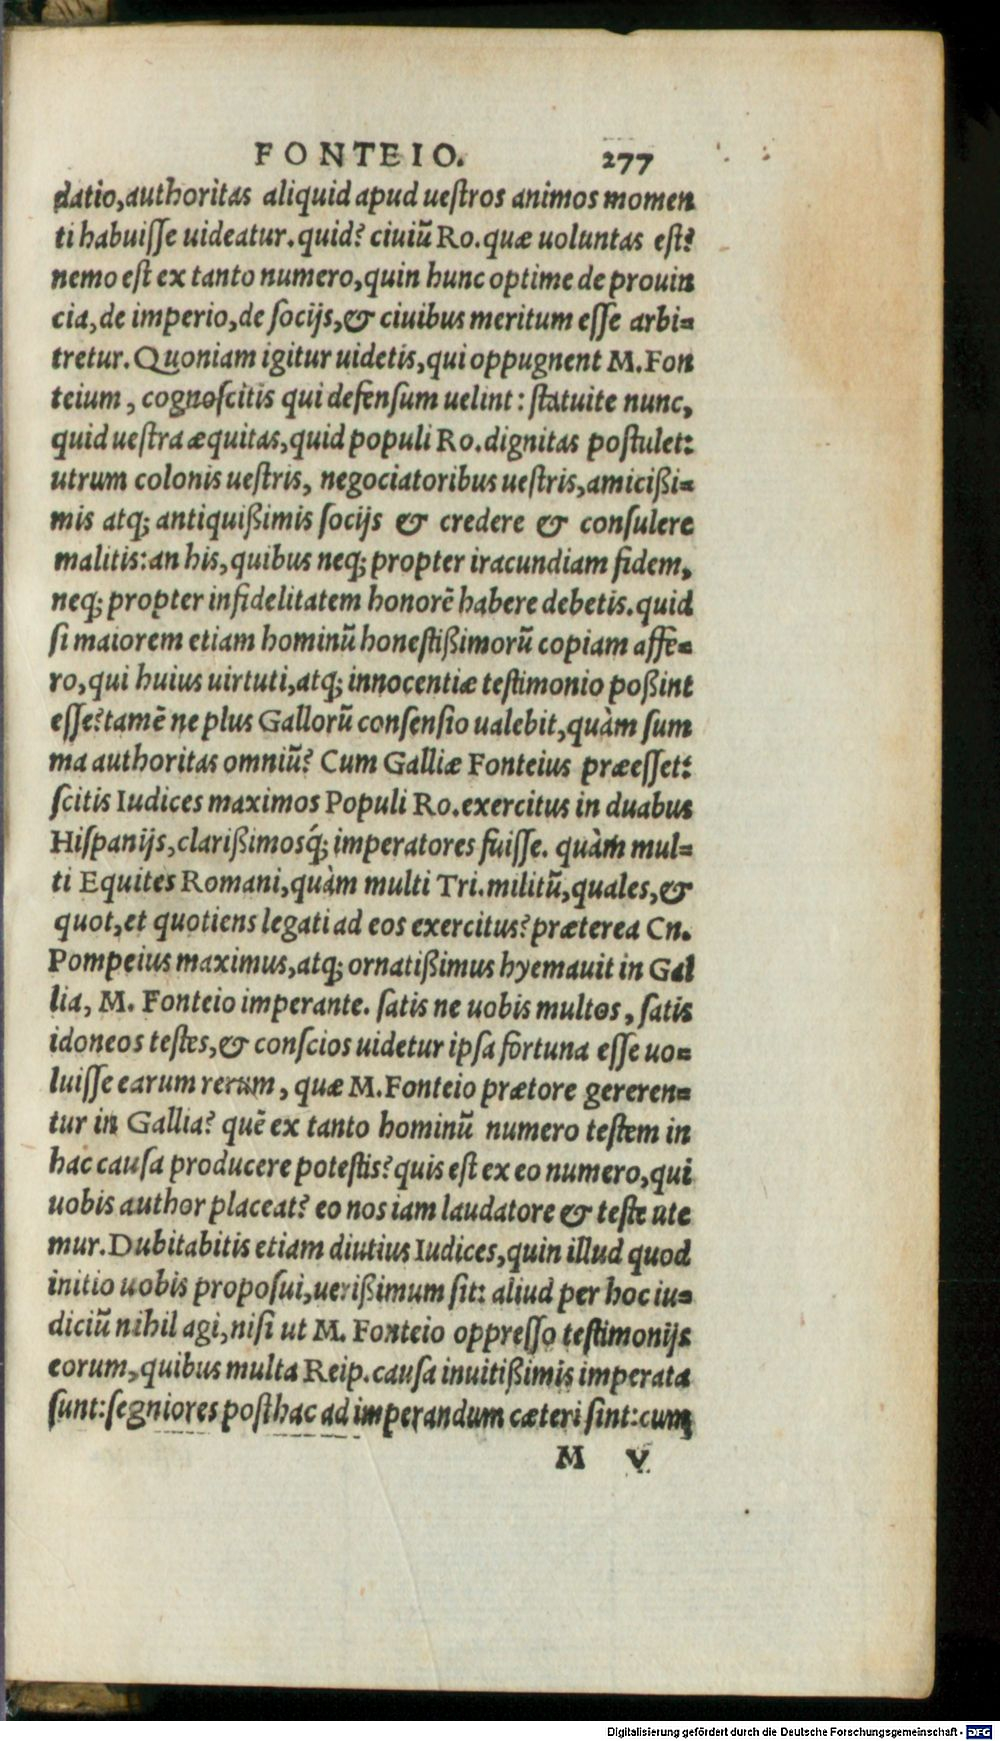 FONTEIO. 277
datio,authoritas aliquid apud uestros animos momen
ti habuisse uideatur.quid? ciuiũ Ro.quæ uoluntas est?
nemo est ex tanto numero,quin hunc optime de prouin
cia,de imperio,de socijs,& ciuibus meritum esse arbi=
tretur. Quoniam igitur uidetis,qui oppugnent M.Fon
teium, cognoscitis qui defensum uelint: statuite nunc,
quid uestra æquitas,quid populi Ro.dignitas postulet:
utrum colonis uestris, negociatoribus uestris,amicißi=
mis atq; antiquißimis socijs & credere & consulere
malitis:an his,quibus neq; propter iracundiam fidem,
neq; propter infidelitatem honorẽ habere debetis.quid
si maiorem etiam hominũ honestißimorũ copiam affe=
ro,qui huius uirtuti,atq; innocentiæ testimonio poßint
esse?tamẽ ne plus Gallorũ consensio ualebit,quàm sum
ma authoritas omniũ? Cum Galliæ Fonteius præesset:
scitis Iudices maximos Populi Ro.exercitus in duabus
Hispanijs,clarißimosq́; imperatores fuisse. quàm mul=
ti Equites Romani,quàm multi Tri.militũ,quales,&
quot,et quotiens legati ad eos exercitus?præterea Cn.
Pompeius maximus,atq; ornatißimus hyemauit in Gal
lia, M. Fonteio imperante. satis ne uobis multos, satis
idoneos testes,& conscios uidetur ipsa fortuna esse uo=
luisse earum rerum, quæ M.Fonteio prætore gereren=
tur in Gallia? quẽ ex tanto hominũ numero testem in
hac causa producere potestis?quis est ex eo numero,qui
uobis author placeat? eo nos iam laudatore & teste ute
mur.Dubitabitis etiam diutius Iudices,quin illud quod
initio uobis proposui,uerißimum sit: aliud per hoc iu=
diciũ nihil agi,nisi ut M. Fonteio oppresso testimonijs
eorum,quibus multa Reip.causa inuitißimis imperata
sunt:segniores posthac ad imperandum cæteri sint:cum
M V
Digitalisierung gefördert durch die Deutsche Forschungsgemeinschaft - DFG